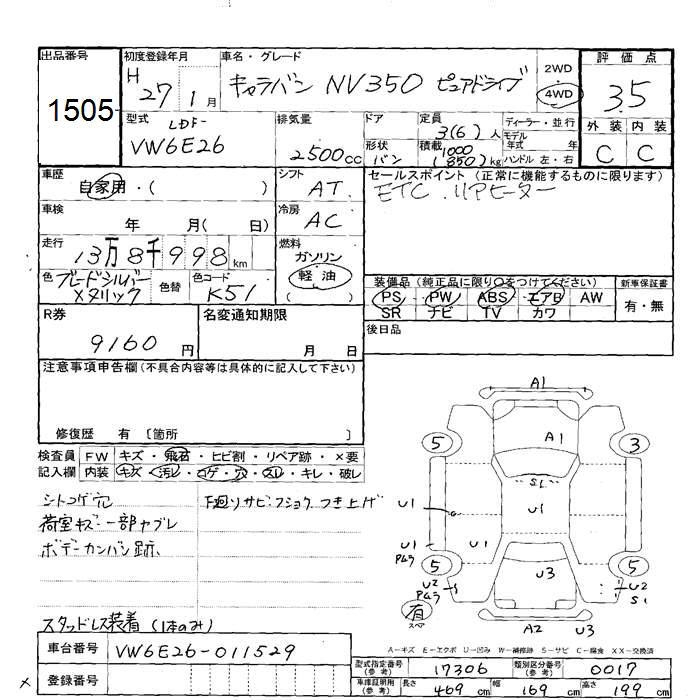 出品番号
1505
初度登録年月
H 27年 1月
車名・グレード
キャラバン NV350 ピュアドライブ
2WD
4WD
評価点
3.5
外装 内装
C C
型式
LDF-
VW6E26
排気量
2500cc
ドア
形状
バン
定員
3(6)人
積載 1000
(850)kg
ディーラー・並行
モデル
年式 年
ハンドル 左・右
車歴
自家用・( )
シフト
AT
セールスポイント (正常に機能するものに限ります)
ETC.リアヒーター
車検
年 月( 日)
冷房
AC
走行
13万8千998km
燃料
ガソリン
軽油
( )
色 ブレードシルバーメタリック
色替
色コード
K51
装備品 (純正品に限り○をつけてください)
PS PW ABS エアB AW
SR ナビ TV カワ
新車保証書
有・無
R券
9160円
名変通知期限
月 日
後日品
注意事項申告欄(不具合内容等は具体的に記入して下さい)
修復歴 有 〔箇所 〕
検査員記入欄
FW キズ・飛石・ヒビ割・リペア跡・×要
内装 キズ・汚レ・コゲ・穴・スレ・キレ・破レ
シートコゲ穴
荷室キズ一部ヤブレ
ボデーカンバン跡
下廻りサビフショク つき上げ
スタッドレス装着(1本のみ)
A1
5
3
A1
S1
U1
U1
U1
U1
5
5
U3
U2
U2
S1
有
スペア
A2 U3
A-キズ E-エクボ U-凹み W-補修跡 S-サビ C-腐食 XX-交換済
車台番号
VW6E26-011529
登録番号
×
型式指定番号
(参考)
17306
類別区分番号
(参考)
0017
車庫証明用
(参考)
長さ 469cm 幅 169cm 高さ 199cm